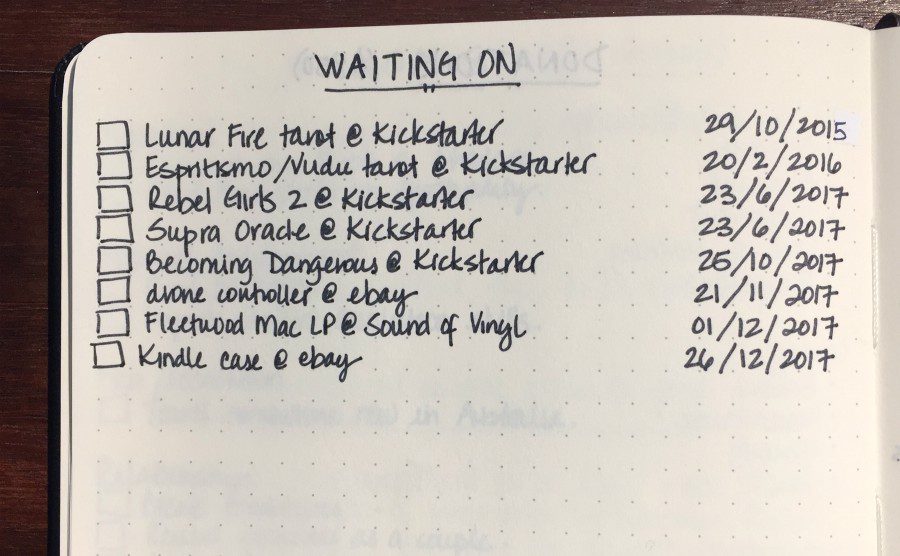 WAITING ON
Lunar Fire tarot @ Kickstarter 29/10/2015
Espiritismo/Vudu tarot @ Kickstarter 20/2/2016
Rebel Girls 2 @ Kickstarter 23/6/2017
Supra Oracle @ Kickstarter 23/6/2017
Becoming Dangerous @ Kickstarter 25/10/2017
drone controller @ ebay 21/11/2017
Fleetwood Mac LP @ Sound of Vinyl 01/12/2017
Kindle case @ ebay 26/12/2017
in Australia.
as a couple.